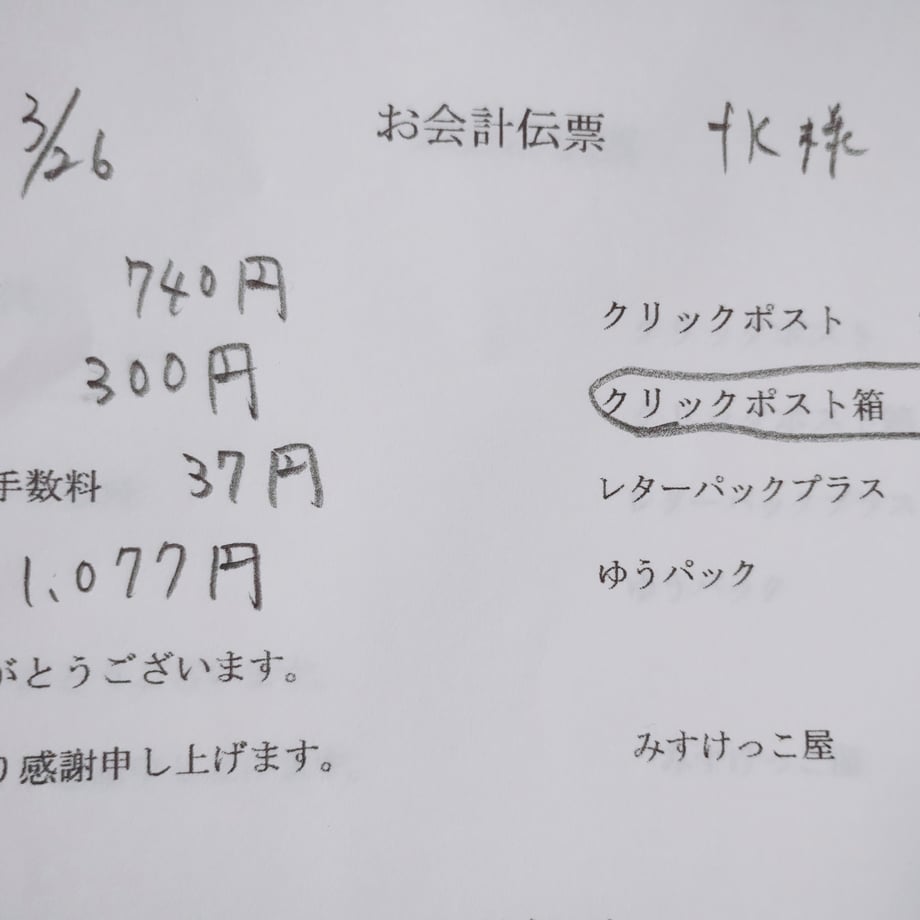 3/26 お会計伝票 tK様
740円
クリックポスト
300円
クリックポスト箱
手数料 37円
レターパックプラス
1,077円
ゆうパック
がとうございます。
みすけっこ屋
り感謝申し上げます。